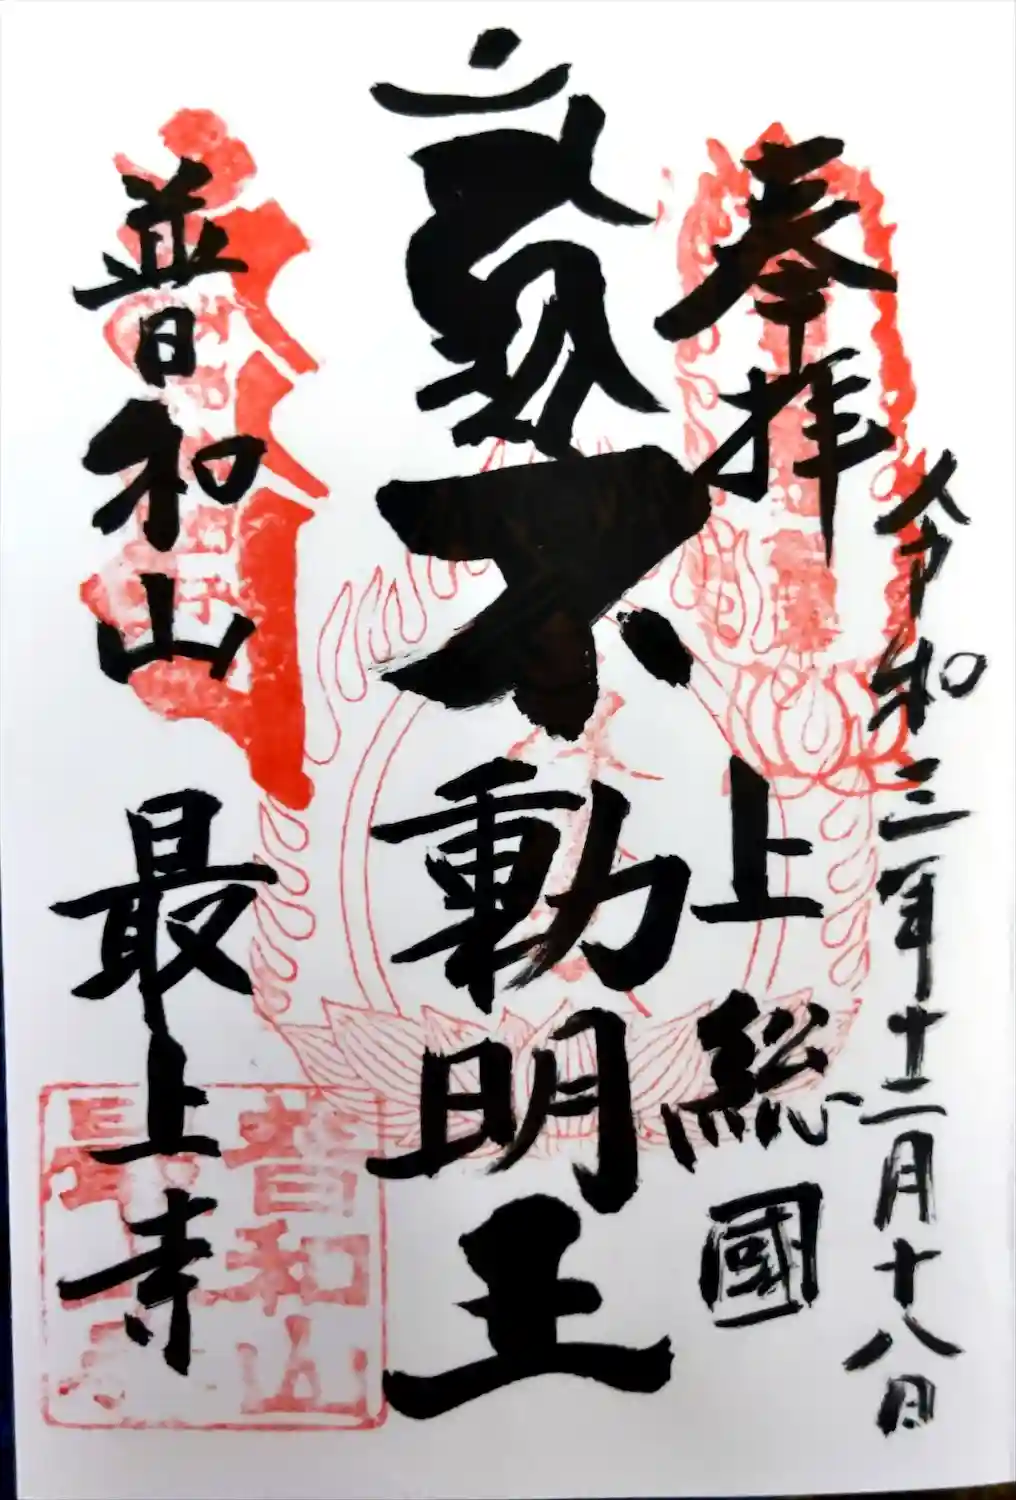 令和三年十二月十八日
奉拝
上総國
不動明王
普和山
最上寺
普和山
最上寺